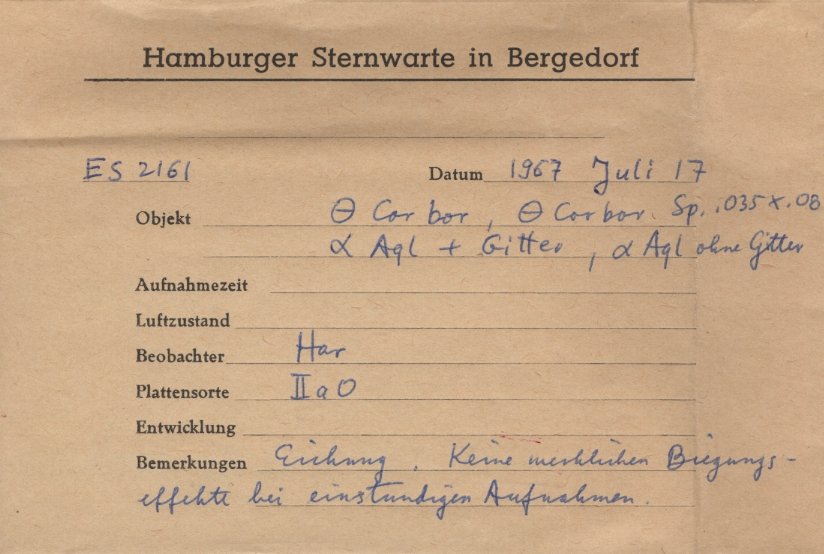 Hamburger Sternwarte in Bergedorf
ES 2161 Datum 1967 Juli 17
Objekt Θ Cor bor, Θ Cor bor Sp. .035 x .08
α Aql + Gitter, α Aql ohne Gitter
Aufnahmezeit
Luftzustand
Beobachter Har
Plattensorte II a O
Entwicklung
Bemerkungen Eichung. Keine merklichen Biegungs-
effekte bei einstundigen Aufnahmen.